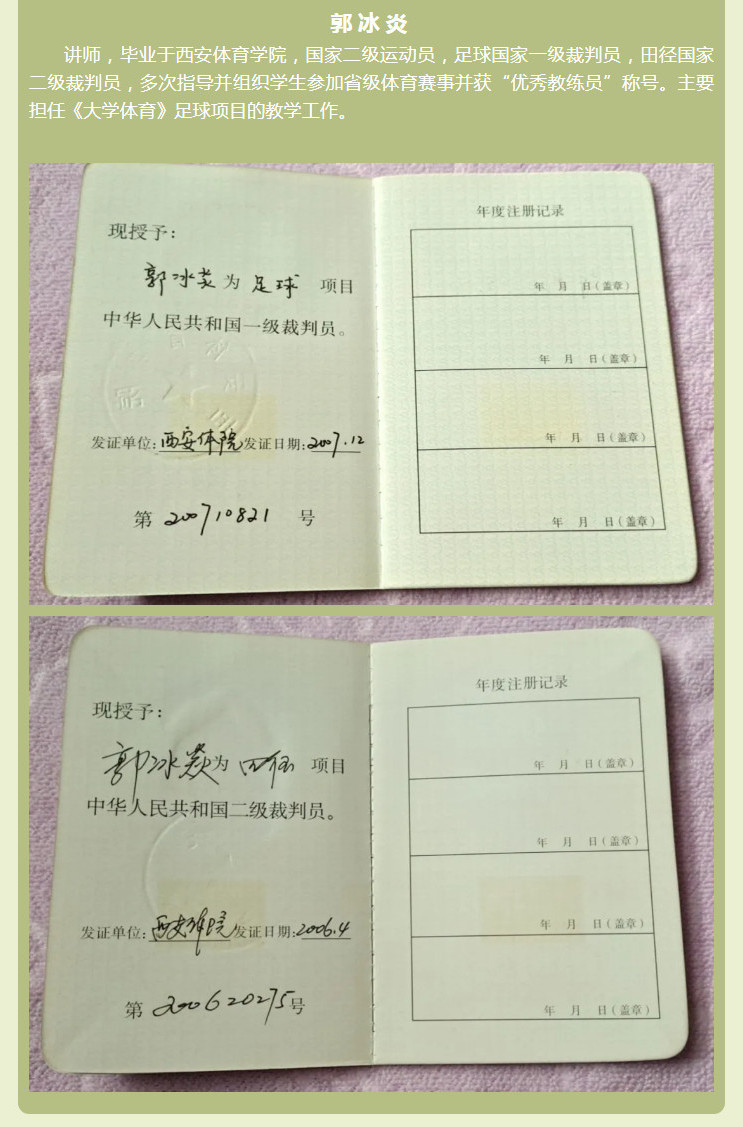 郭冰炎
讲师，毕业于西安体育学院，国家二级运动员，足球国家一级裁判员，田径国家
二级裁判员，多次指导并组织学生参加省级体育赛事并获“优秀教练员”称号。主要
担任《大学体育》足球项目的教学工作。
现授予：
郭冰炎为 足球 项目
中华人民共和国一级裁判员。
发证单位:西安体院发证日期:2007.12
第 200710821 号
年度注册记录
年 月 日(盖章)
年 月 日(盖章)
年 月 日(盖章)
年 月 日(盖章)
现授予：
郭冰焱为 田径 项目
中华人民共和国二级裁判员。
发证单位:西安体院发证日期:2006.4
第 200620275号
年度注册记录
年 月 日(盖章)
年 月 日(盖章)
年 月 日(盖章)
年 月 日(盖章)